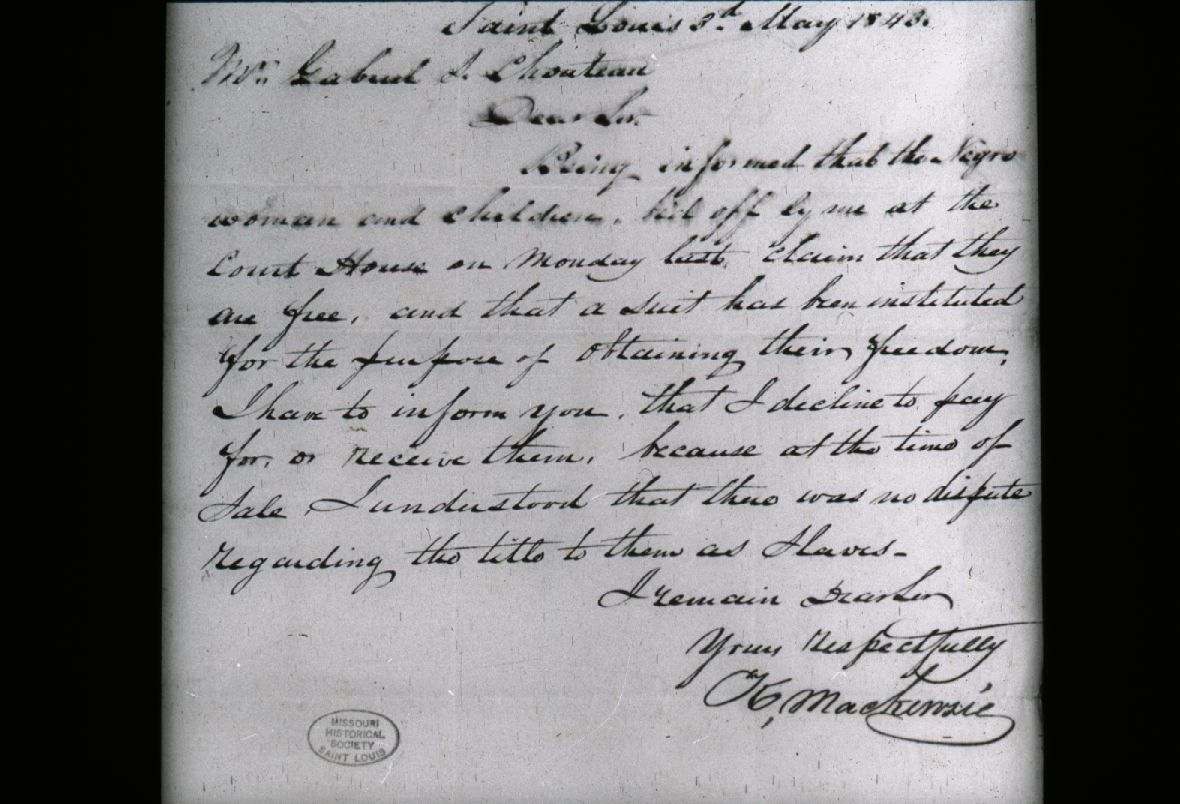 Saint Louis 3d May 1843.
Mr. Gabriel S. Chouteau
Dear Sir.
Being informed that the Negro
woman and children, bid off by me at the
Court House on Monday last, claim that they
are free, and that a suit has been instituted
for the purpose of obtaining their freedom,
I have to inform you, that I decline to pay
for, or receive them, because at the time of
Sale I understood that there was no dispute
regarding the title to them as Slaves-
I remain Dear Sir
Yours respectfully
K, Mackenzie
MISSOURI
HISTORICAL
SOCIETY
SAINT LOUIS